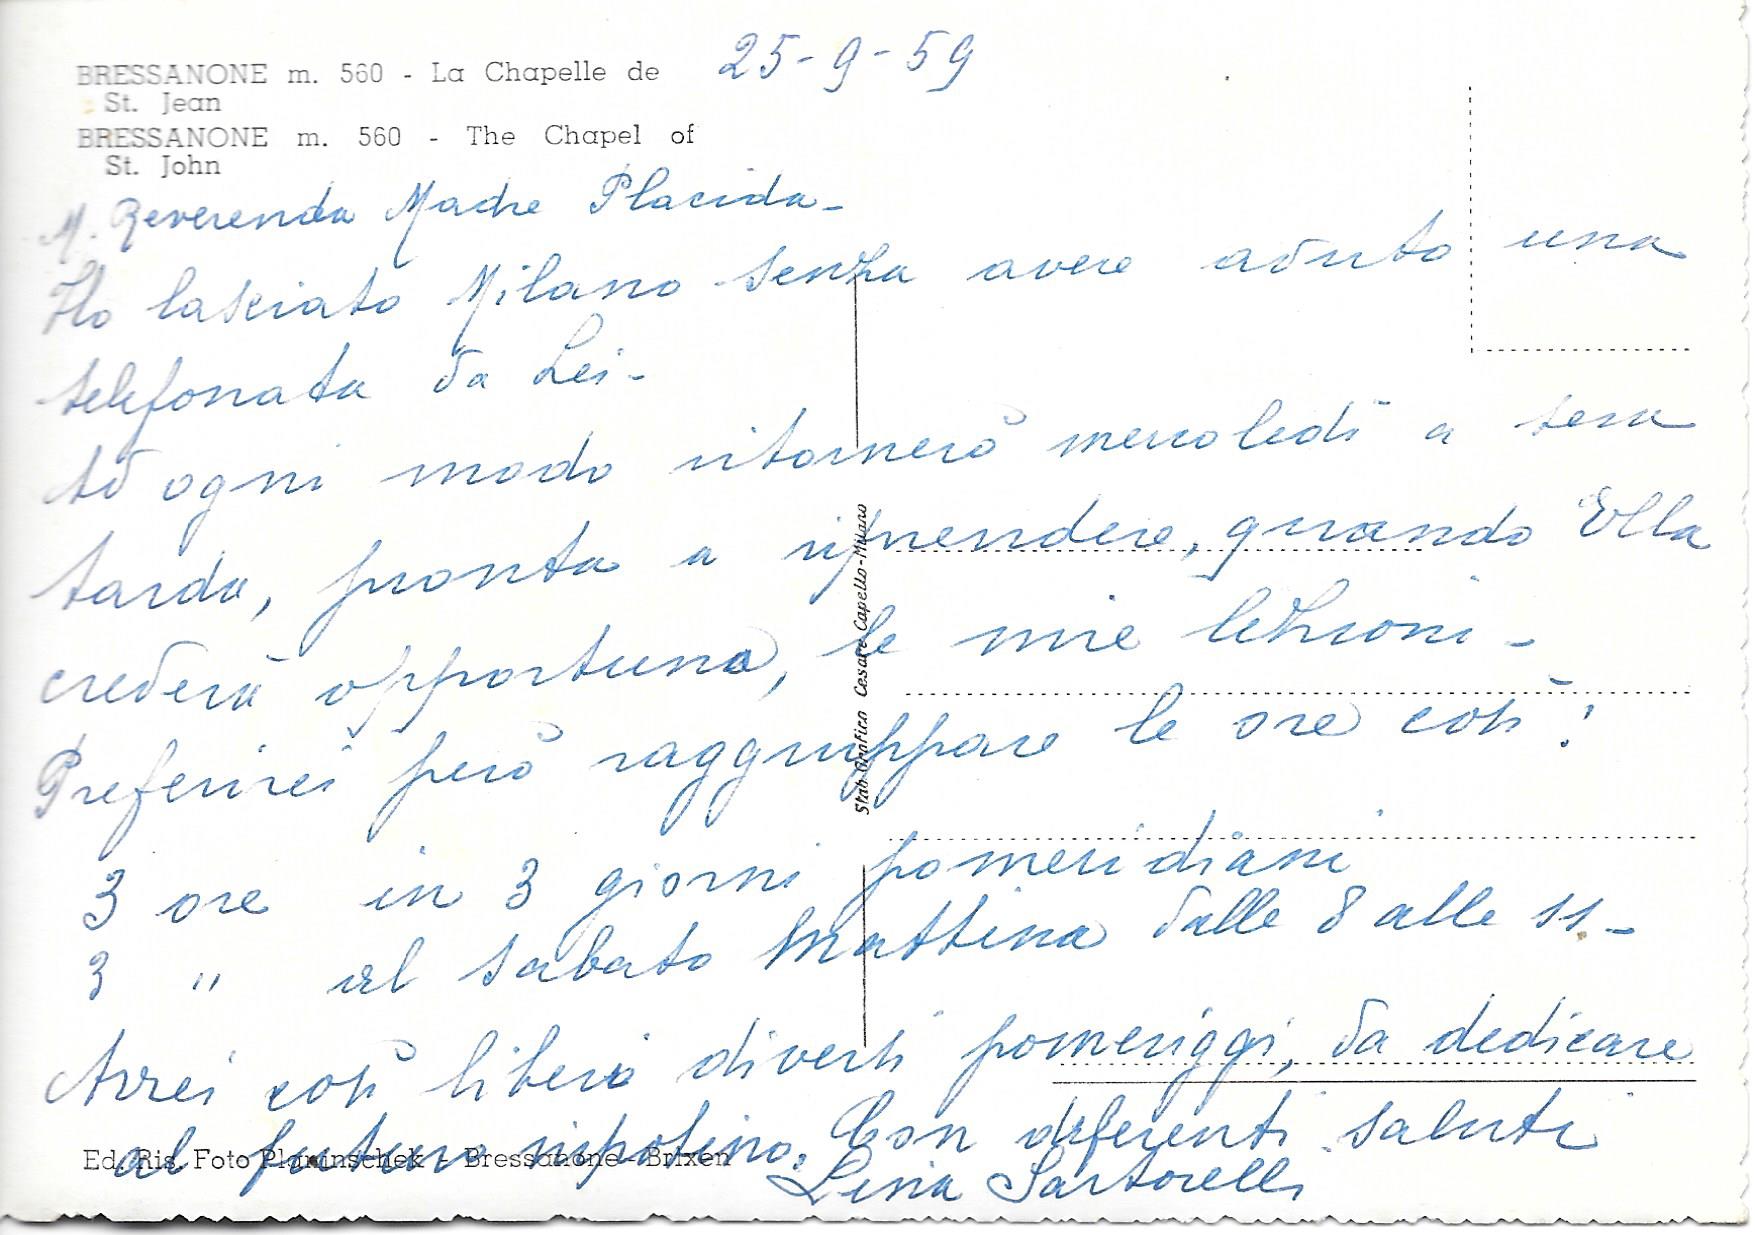 BRESSANONE m. 560 - La Chapelle de
St. Jean
BRESSANONE m. 560 - The Chapel of
St. John
25-9-59
M. Reverenda Madre Placida -
Ho lasciato Milano senza avere avuto una
telefonata da Lei -
Ad ogni modo ritornerò mercoledì a sera
tarda, pronta a riprendere, quando Ella
crederà opportuno, le mie lezioni -
Preferirei però raggruppare le ore così:
3 ore in 3 giorni pomeridiani
3 " al sabato mattina dalle 8 alle 11. -
Avrei così liberi diversi pomeriggi, da dedicare
al futuro nipotino. Con deferenti saluti
Lina Sartorelli
Stab. Grafico Cesare Capello - Milano
Ed. Ris. Foto Planinschek - Bressanone - Brixen